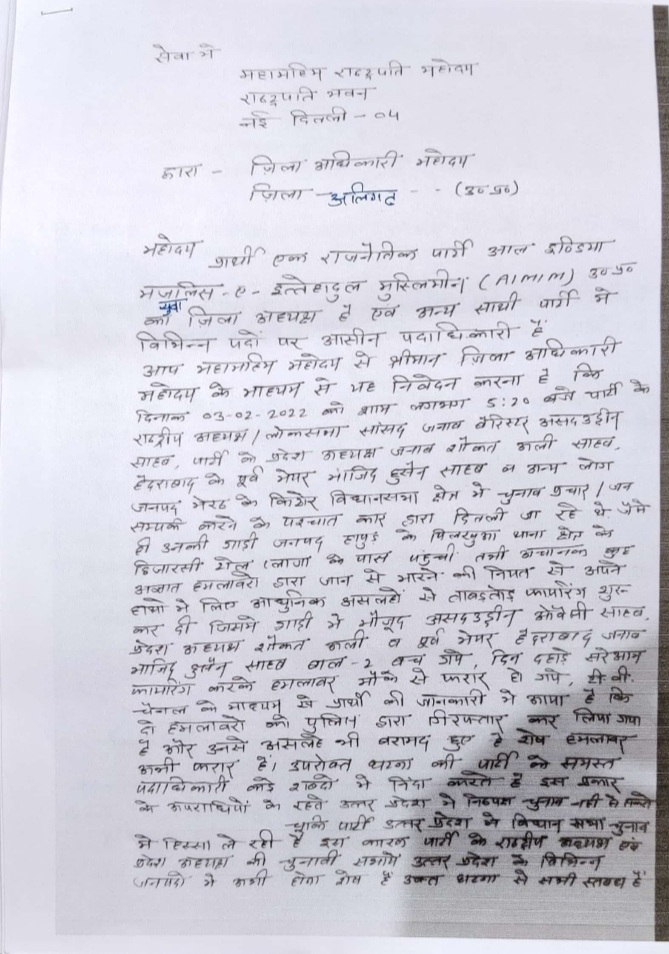 सेवा में
महामहिम राष्ट्रपति महोदय
राष्ट्रपति भवन
नई दिल्ली - 04
द्वारा - ज़िला अधिकारी महोदय
ज़िला - अलिगढ - - (उ0प्र0)
महोदय प्रार्थी एक राजनैतिक पार्टी आल इण्डिया
मजलिस-ए-इत्तेहादुल मुस्लिमीन (AIMIM) उ0प्र0
युवा
का ज़िला अध्यक्ष है एवं अन्य साथी पार्टी में
विभिन्न पदों पर आसीन पदाधिकारी है
आप महामहिम महोदय से श्रीमान ज़िला अधिकारी
महोदय के माध्यम से यह निवेदन करना है कि
दिनांक 03-02-2022 को शाम लगभग 5:20 बजे पार्टी के
राष्ट्रीय अध्यक्ष/लोकसभा सांसद जनाब बैरिस्टर असदउद्दीन
साहब, पार्टी के प्रदेश अध्यक्ष जनाब शौकत अली साहब,
हैदराबाद के पूर्व मेयर माजिद हुसैन साहब व अन्य लोग
जनपद मेरठ के किठोर विधानसभा क्षेत्र में चुनाव प्रचार/जन
सम्पर्क करने के पश्चात कार द्वारा दिल्ली जा रहे थे जैसे
ही उनकी गाडी जनपद हापुड के पिलखुआ थाना क्षेत्र के
छिजारसी टोल प्लाजा के पास पहुंची तभी अचानक कुछ
अज्ञात हमलावरो द्वारा जान से मारने की नियत से अपने
हाथो में लिए आधुनिक असलहों से ताबडतोड फायरिंग शुरु
कर दी जिसमे गाडी में मौजूद असदउद्दीन ओवैसी साहब,
प्रदेश अध्यक्ष शौकत अली व पूर्व मेयर हैदराबाद जनाब
माजिद हुसैन साहब बाल-2 बच गये, दिन दहाडे सरेआम
फायरिंग करके हमलावर मौके से फरार हो गये, टी.वी.
चैनल के माध्यम से प्रार्थी की जानकारी में आया है कि
दो हमलावरो को पुलिस द्वारा गिरफ्तार कर लिया गया
है और उनसे असलहे भी बरामद हुए है शेष हमलावर
अभी फरार है। उपरोक्त घटना की पार्टी के समस्त
पदाधिकारी कडे शब्दो में निंदा करते है इस प्रकार
के अपराधियों के रहते उत्तर प्रदेश में निष्पक्ष चुनाव नही हो सकते
चूंकि पार्टी उत्तर प्रदेश में विधान सभा चुनाव
में हिस्सा ले रही है इस कारण पार्टी के राष्ट्रीय अध्यक्ष एवं
प्रदेश अध्यक्ष की चुनावी सभाये उत्तर प्रदेश के विभिन्न
जनपदो में अभी होना शेष है उक्त घटना से सभी स्तब्ध है